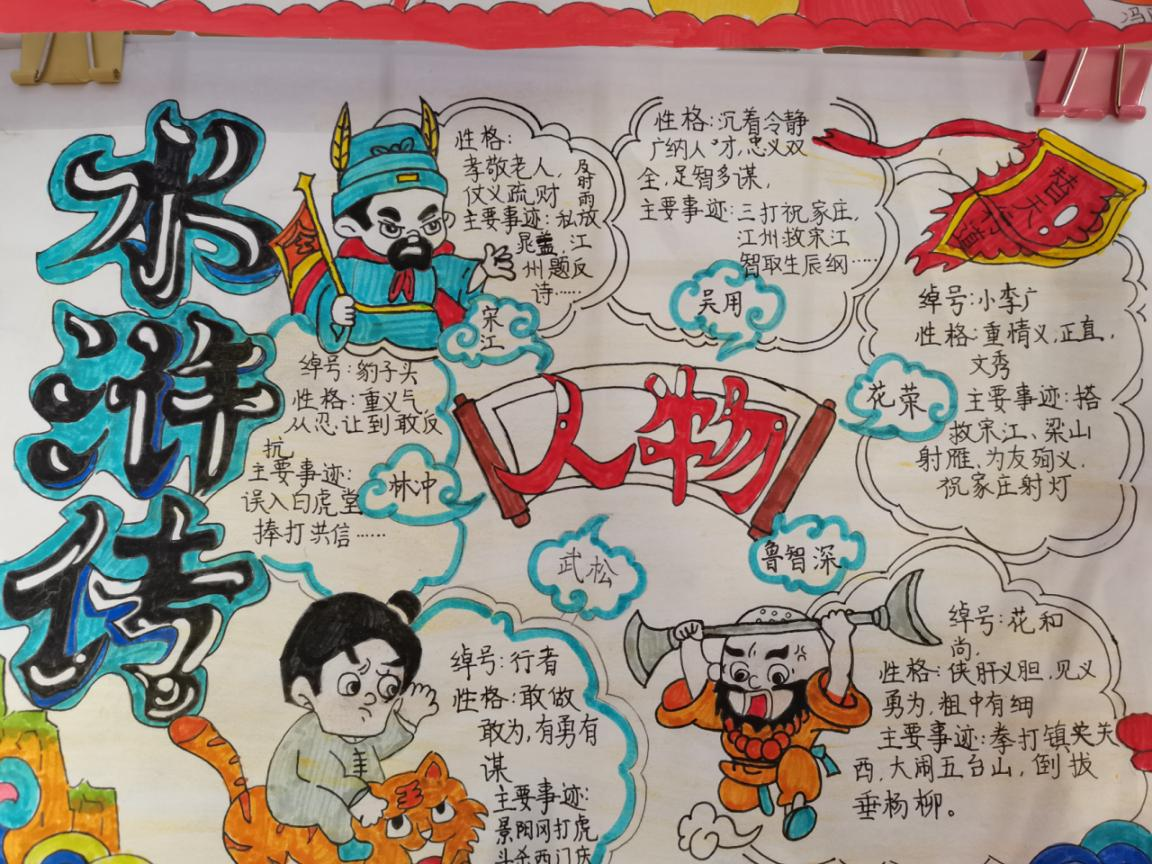 水浒传
人物
宋江
性格:
孝敬老人,
仗义疏财
及时雨
主要事迹:私放
晁盖,江
州题反
诗……
吴用
性格:沉着冷静
广纳人才,忠义双
全,足智多谋,
主要事迹:三打祝家庄,
江州救宋江
智取生辰纲……
替天行道
花荣
绰号:小李广
性格:重情义,正直,
文秀
主要事迹:搭
救宋江、梁山
射雁,为友殉义,
祝家庄射灯
林冲
绰号:豹子头
性格:重义气
从忍让到敢反
抗
主要事迹:
误入白虎堂
捧打洪信……
武松
绰号:行者
性格:敢做
敢为,有勇有
谋
主要事迹:
景阳冈打虎
斗杀西门庆
鲁智深
绰号:花和
尚,
性格:侠肝义胆,见义
勇为,粗中有细
主要事迹:拳打镇关
西,大闹五台山,倒拔
垂杨柳。
王
冯